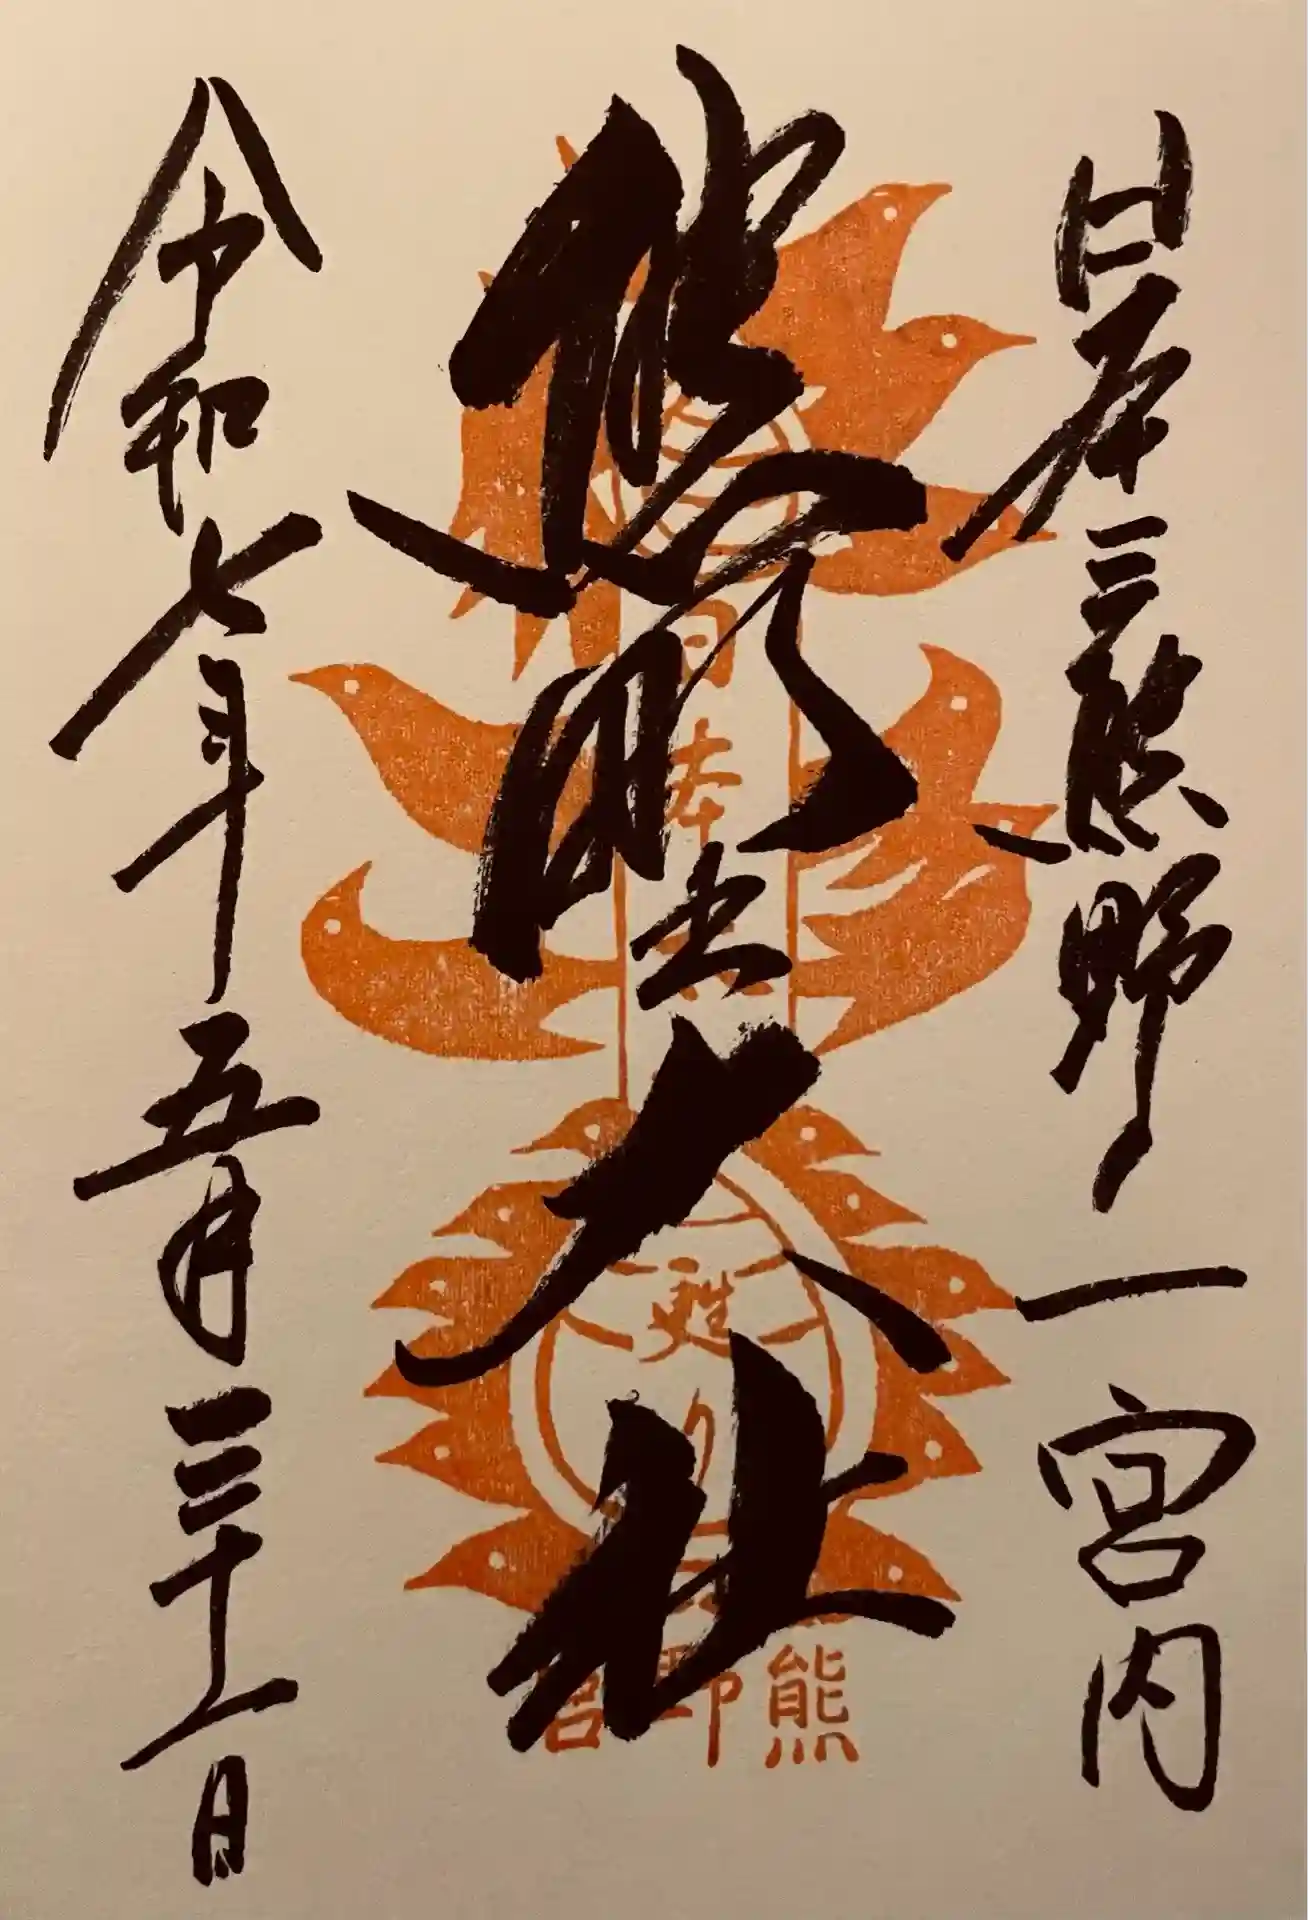 日本三熊野一 宮内
熊野大社
令和七年五月三十一日
日本
甦り
熊野宮